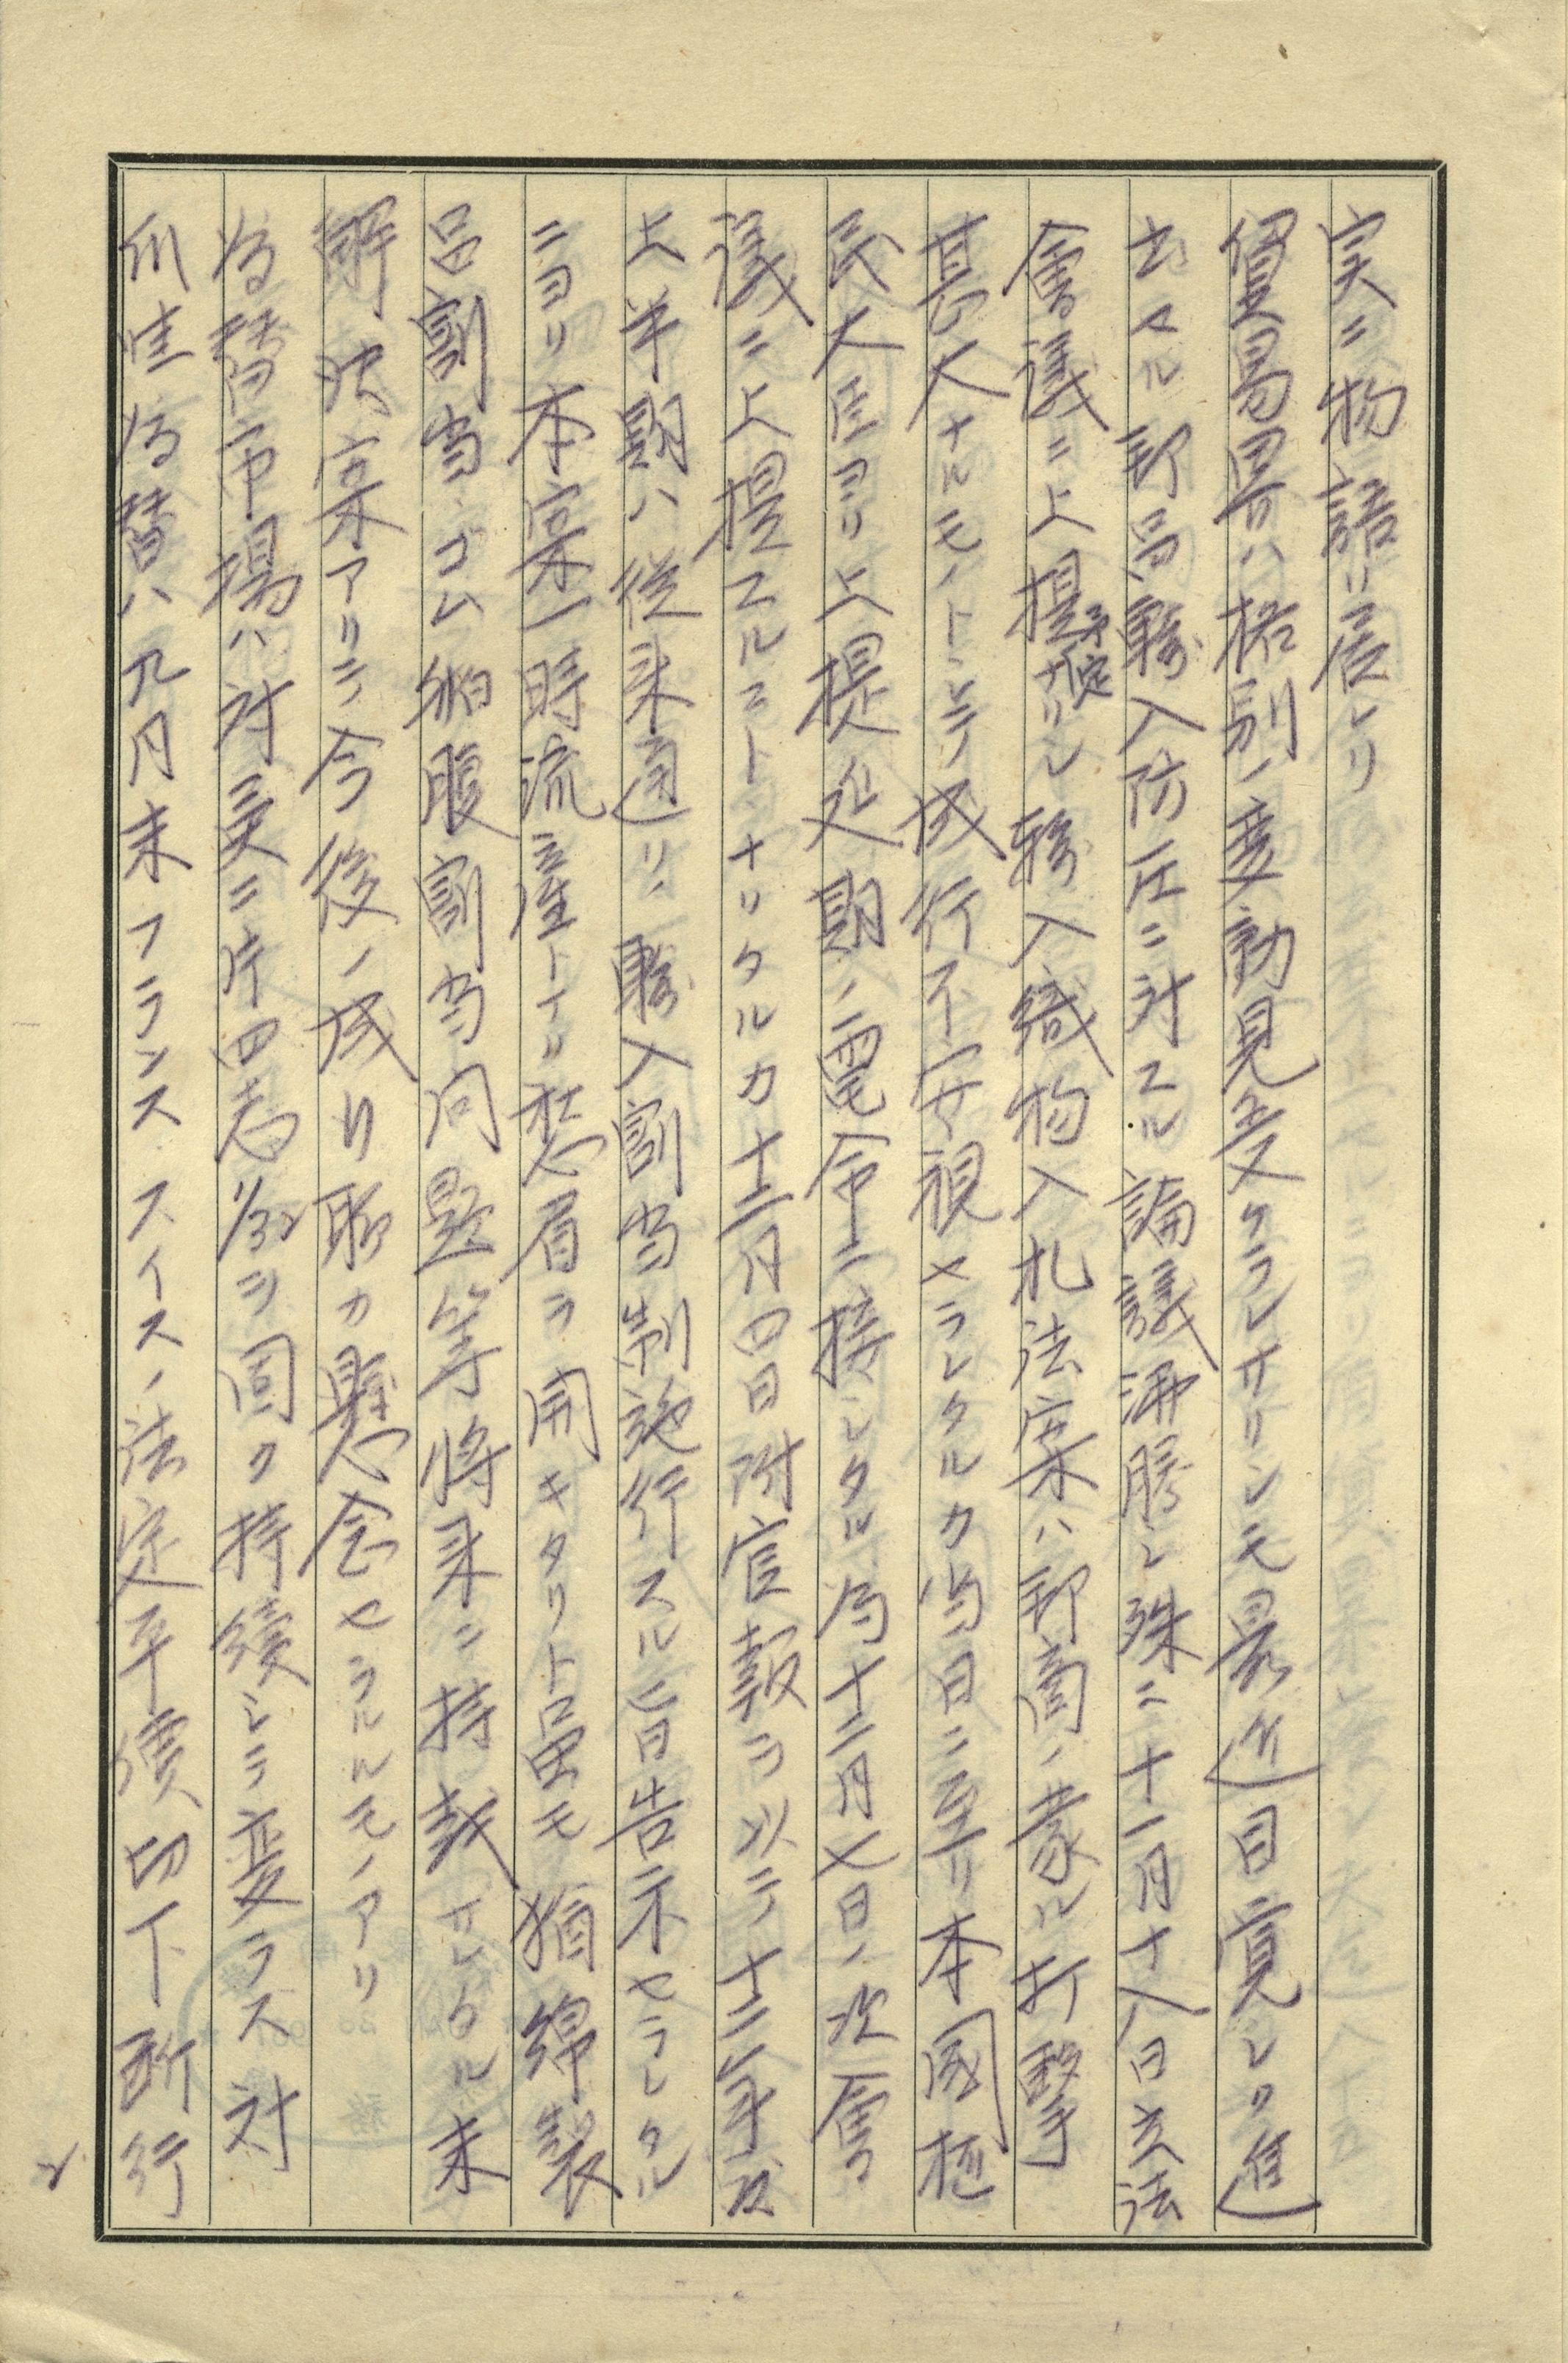 実ニ物語リ居レリ
貿易界ハ格別ノ変動見受ケラレサリシモ最近目覚シク進
出セル邦品輸入防圧ニ対スル論議沸騰シ殊ニ十一月十八日立法
會議ニ上提予定ナリシ移入織物入札法案ハ邦商ノ蒙ル打撃
甚大ナルモノトシテ成行不安視セラレタルカ当日ニ至リ本國植
民大臣ヨリ上提延期ノ電命ニ接シタル為十二月七日ノ次會
議ニ上提スルコトトナリタルカ十二月四日附官報ヲ以テ十二年度
上半期ハ従来通リノ輸入割当制施行スル旨告示セラレタル
ニヨリ本案一時流産トナリ愁眉ヲ開キタリト虽モ猶綿製
品割当、ゴム、船腹割当問題等将来ニ持越サレタル未
解決案アリテ今後ノ成リ行カ懸念セラルルモノアリ
為替市場ハ対英ニ片四志ヲ固ク持續シテ変ラス対
爪哇為替ハ九月末フランス スイスノ法定平價切下断行